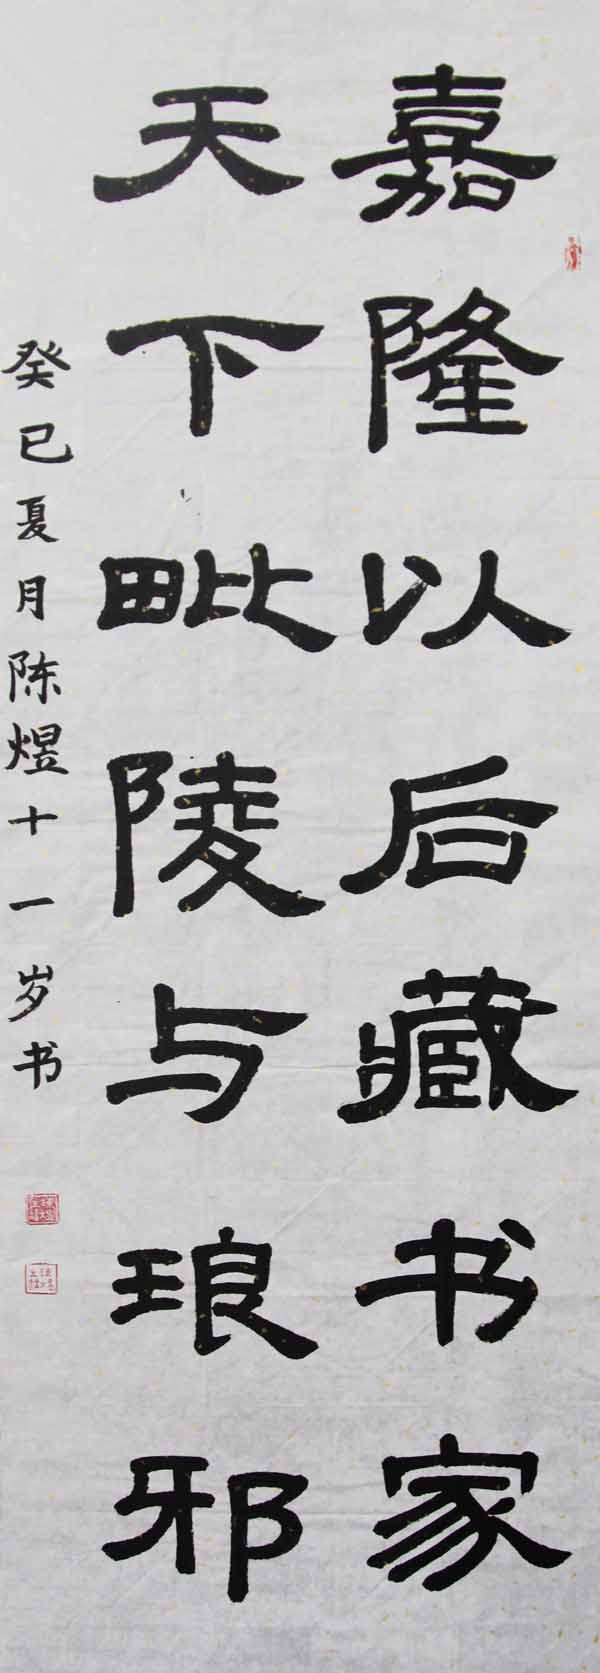 嘉隆以后藏书家
天下毗陵与琅邪
癸已夏月陈煜十一岁书